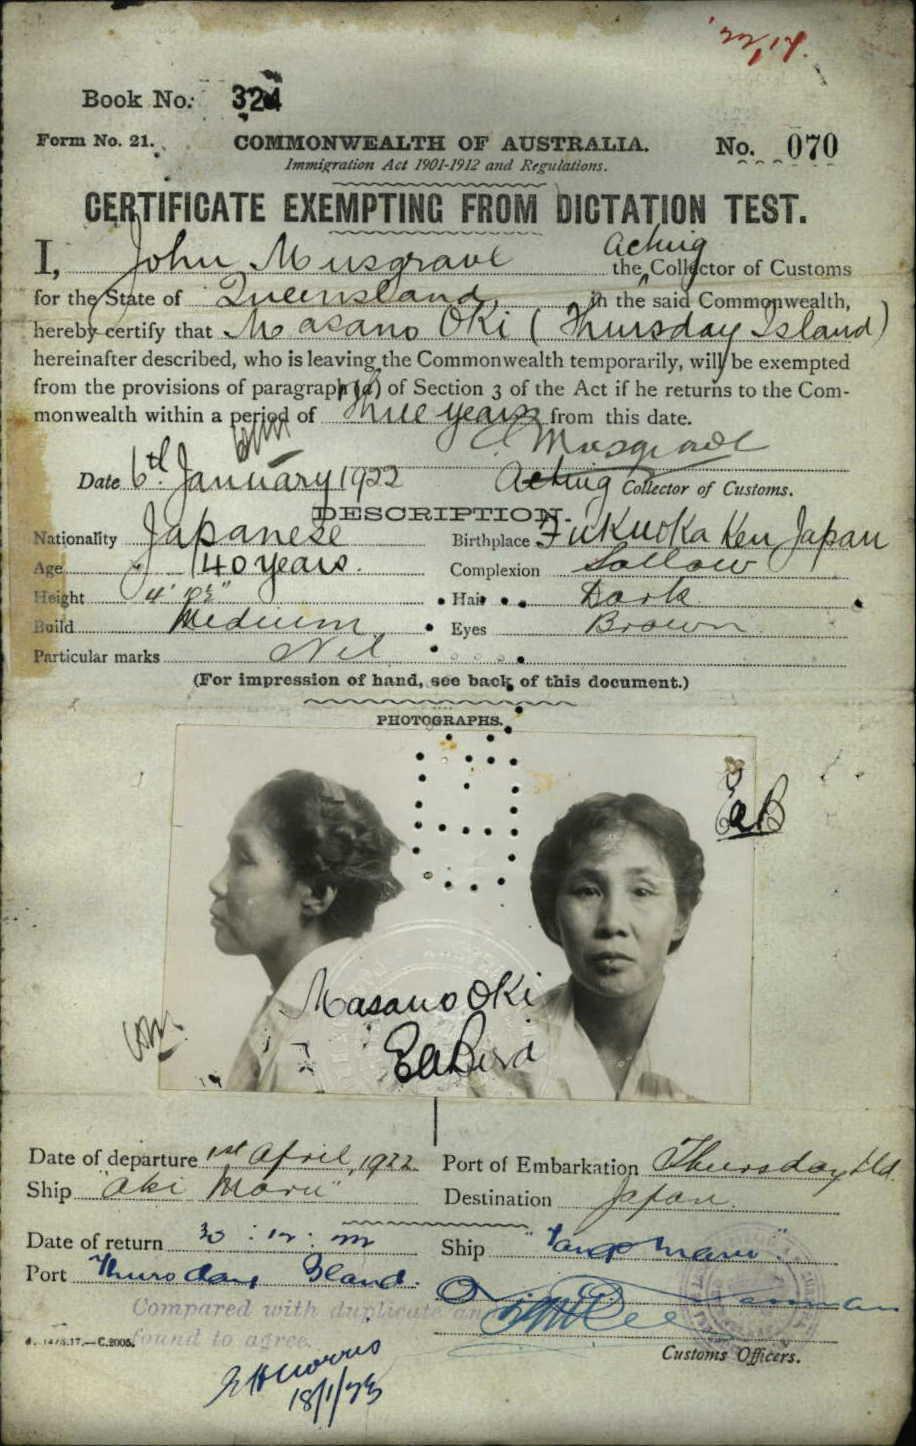 22/14.
Book No: 324
Form No. 21. COMMONWEALTH OF AUSTRALIA. No. 070
Immigration Act 1901-1912 and Regulations.
CERTIFICATE EXEMPTING FROM DICTATION TEST.
I, John Musgrave Acting the Collector of Customs
for the State of Queensland, in the said Commonwealth,
hereby certify that Masano Oki (Thursday Island)
hereinafter described, who is leaving the Commonwealth temporarily, will be exempted
from the provisions of paragraph (a) of Section 3 of the Act if he returns to the Com-
monwealth within a period of three years from this date.
Musgrave
Date 6th January 1922 Acting Collector of Customs.
DESCRIPTION.
Nationality Japanese Birthplace Fukuoka Ken Japan
Age 40 years. Complexion Sallow
Height 4' Hair Dark
Build Medium Eyes Brown
Particular marks Nil
(For impression of hand, see back of this document.)
PHOTOGRAPHS.
EaB
Masano Oki
Date of departure 1st April, 1922 Port of Embarkation Thursday Ild.
Ship "Aki Maru" Destination Japan.
Date of return 30 : 12 : 22 Ship "Tango Maru".
Port Thursday Island.
Compared with duplicate and
found to agree.
C.2005.
Customs Officers.
18/1/23